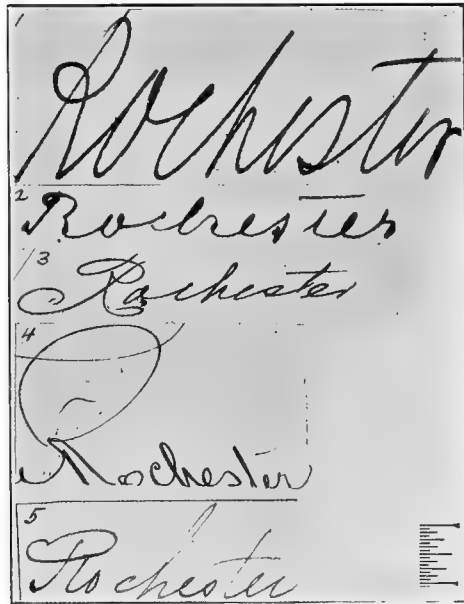 1
Rochester
2
Rochester
3
Rochester
4
Rochester
5
Rochester